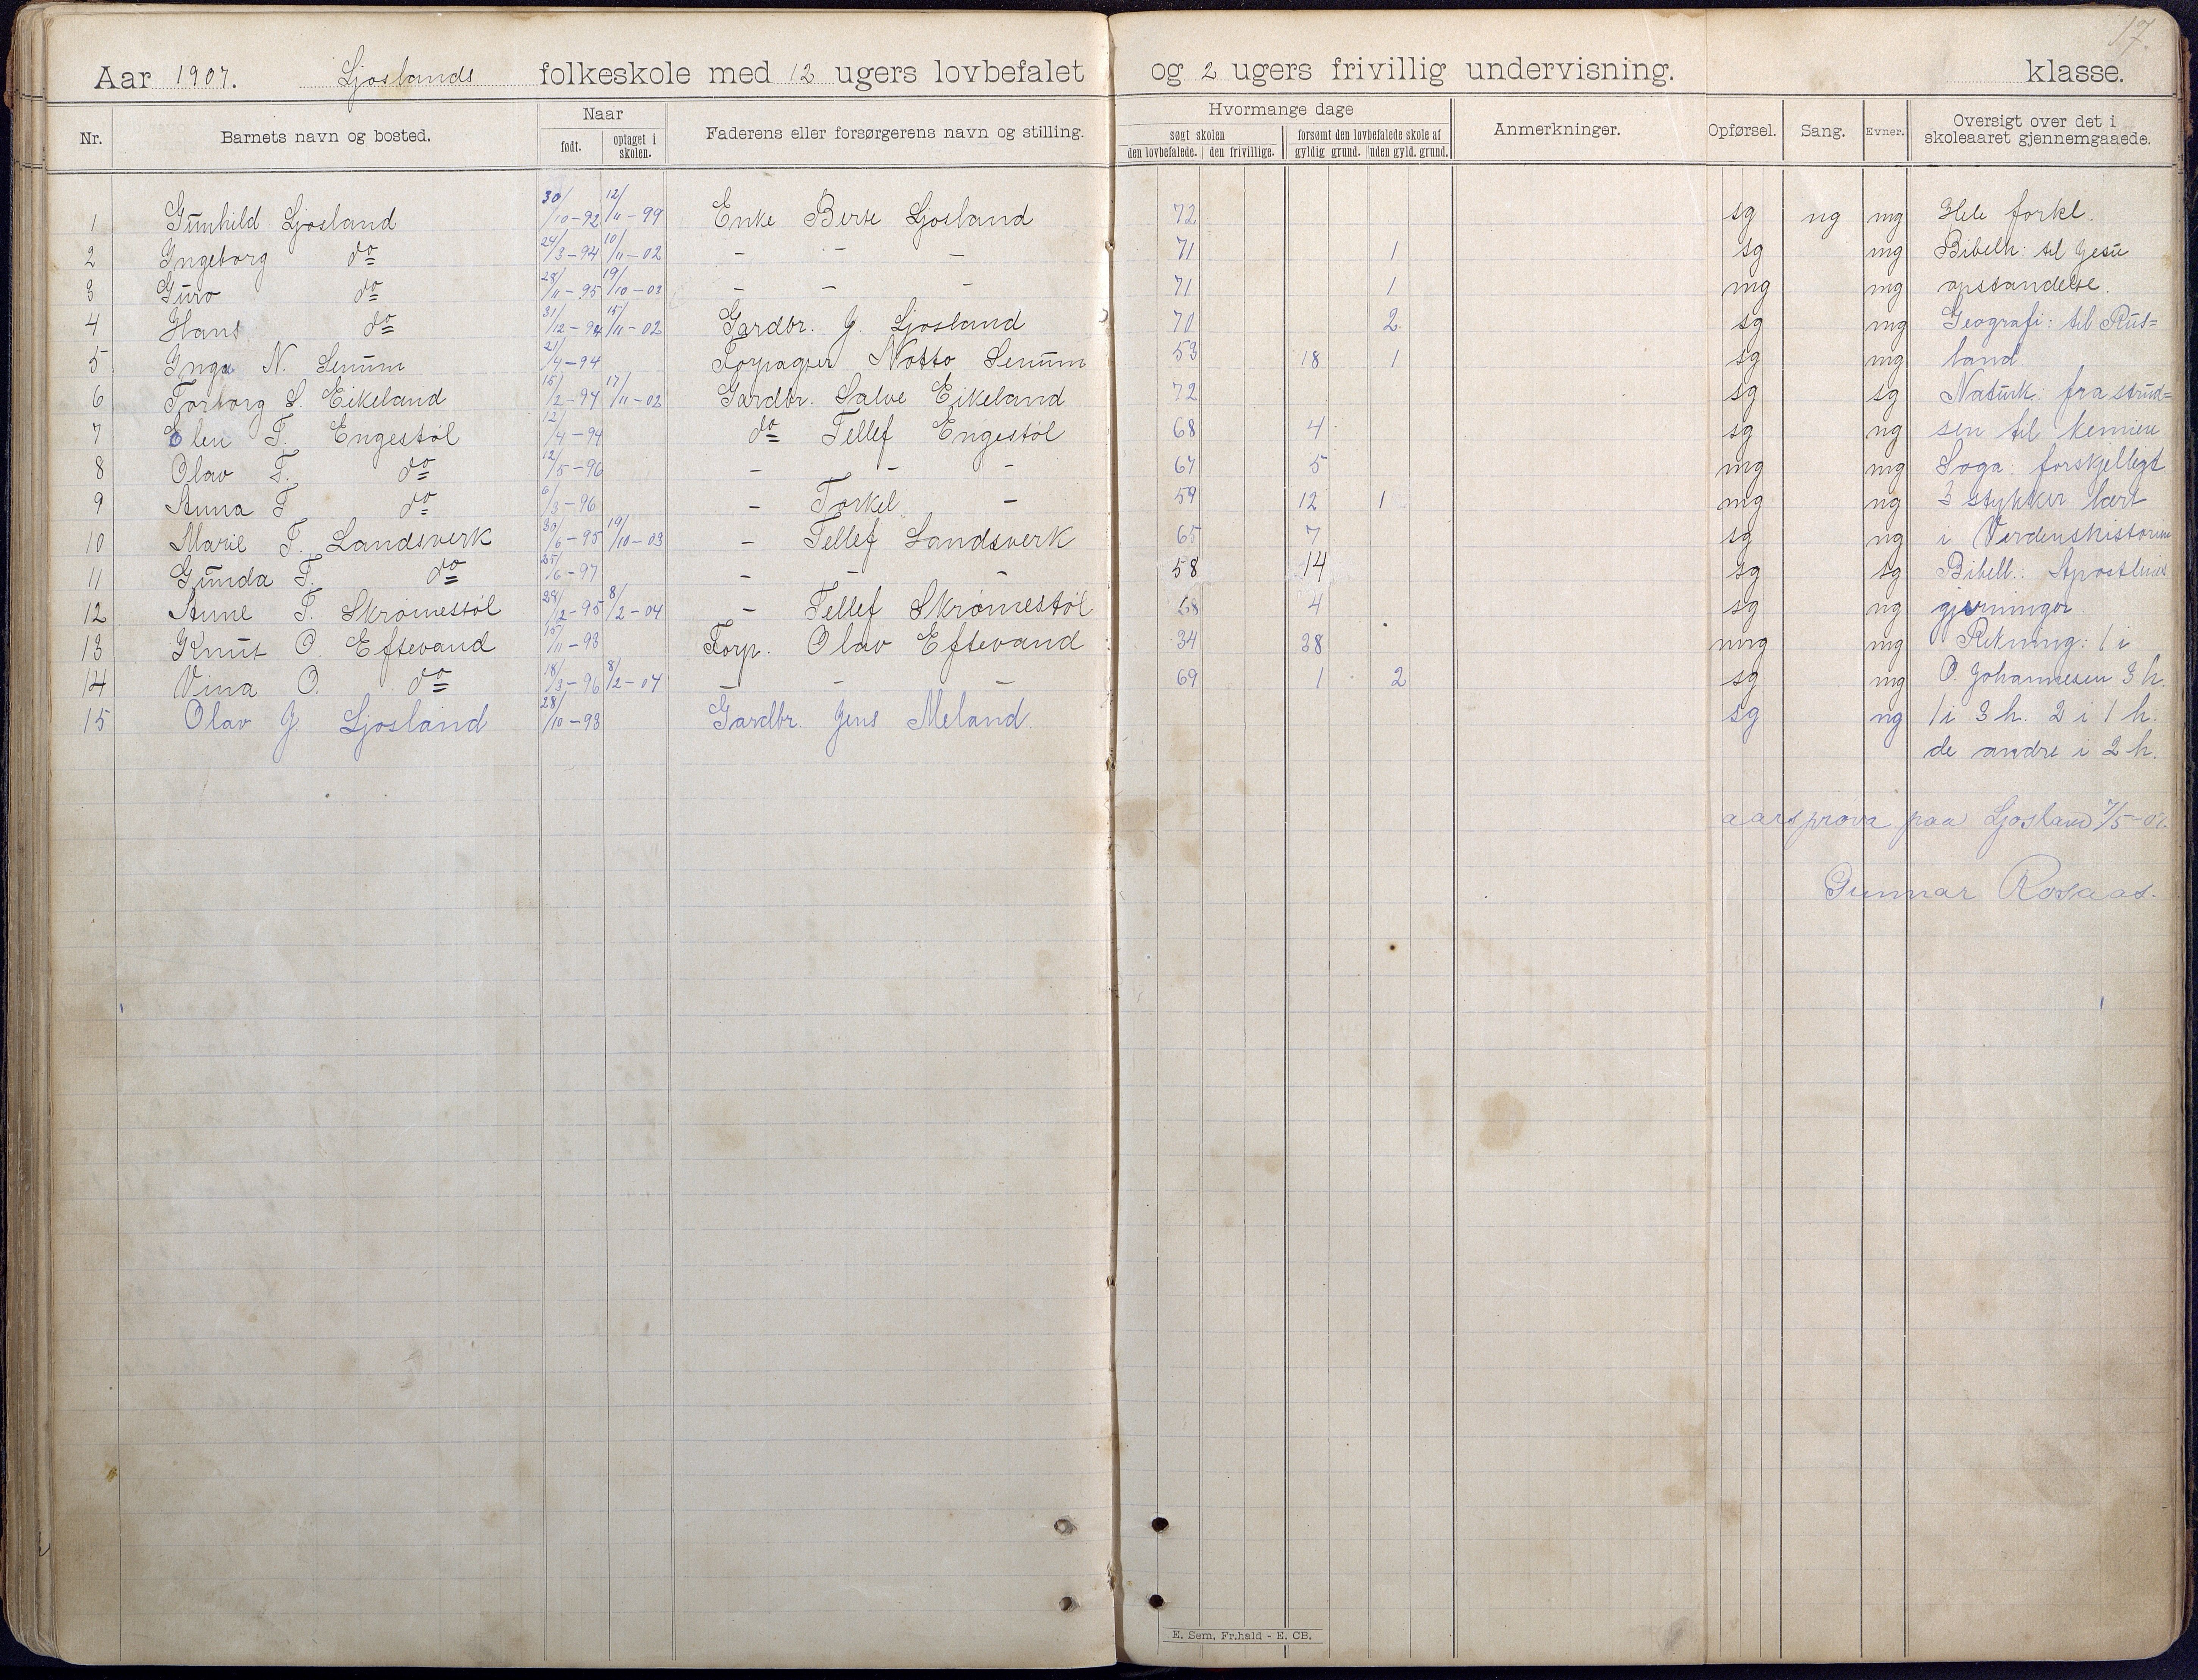 17.
Aar 1907. Ljoslands folkeskole med 12 ugers lovbefalet og 2 ugers frivillig undervisning. klasse.
Nr. Barnets navn og bosted. Naar født. optaget i skolen. Faderens eller forsørgerens navn og stilling. Hvormange dage søgt skolen den lovbefalede. den frivillige. forsømt den lovbefalede skole af gyldig grund. uden gyld. grund. Anmerkninger. Opførsel. Sang. Evner. Oversigt over det i skoleaaret gjennemgaaede.
1 Gunhild Ljosland 30/10-92 12/11-99 Enke Berte Ljosland 72 sg ng mg Hele forkl.
2 Ingeborg do 24/3-94 10/11-02 - - - 71 1 sg mg Bibelh: til Jesu
3 Guro do 28/11-95 19/10-03 - - - 71 1 mg mg opstandelse.
4 Hans do 31/12-94 15/11-02 Gardbr. J. Ljosland 70 2 sg mg Geografi: til Rus=
5 Inga N. Senum 21/4-94 Forpagter Notto Senum 53 18 1 sg mg land
6 Torborg S. Eikeland 15/2-94 17/11-02 Gardbr. Salve Eikeland 72 sg sg Naturk: fra strud=
7 Olen T. Engestøl 12/4-94 do Tellef Engestøl 68 4 sg ng sen til
8 Olav T. do 12/5-96 - - - 67 5 mg mg Soga: forskjelligt
9 Anna T do 6/3-96 - Torkel - 59 12 1 mg ng 3 stykker lært
10 Marie T. Landsverk 30/6-95 19/10-03 - Tellef Landsverk 65 7 sg ng i Verdenshistorien
11 Gunda T. do 25/6-97 - - - 58 14 sg sg Bibell.: Apostlenes
12 Anne T. Skrømestøl 28/2-95 8/2-04 - Tellef Skrømestøl 68 4 sg ng gjerninger.
13 Knut O. Eftevand 15/11-93 Forp. Olav Eftevand 34 38 mg mg Rekning: 1 i
14 Vina O. do 18/3-96 8/2-04 - - - 69 1 2 sg mg O. Johannesen 3 h.
15 Olav J. Ljosland 28/10-93 Gardbr. Jens Meland. sg ng 1 i 3 h. 2 i 1 h.
de andre i 2 h.
aarsprøva paa Ljosland 7/5-07.
Gunnar Rosaas.
E. Sem, Fr.hald - E. CB.